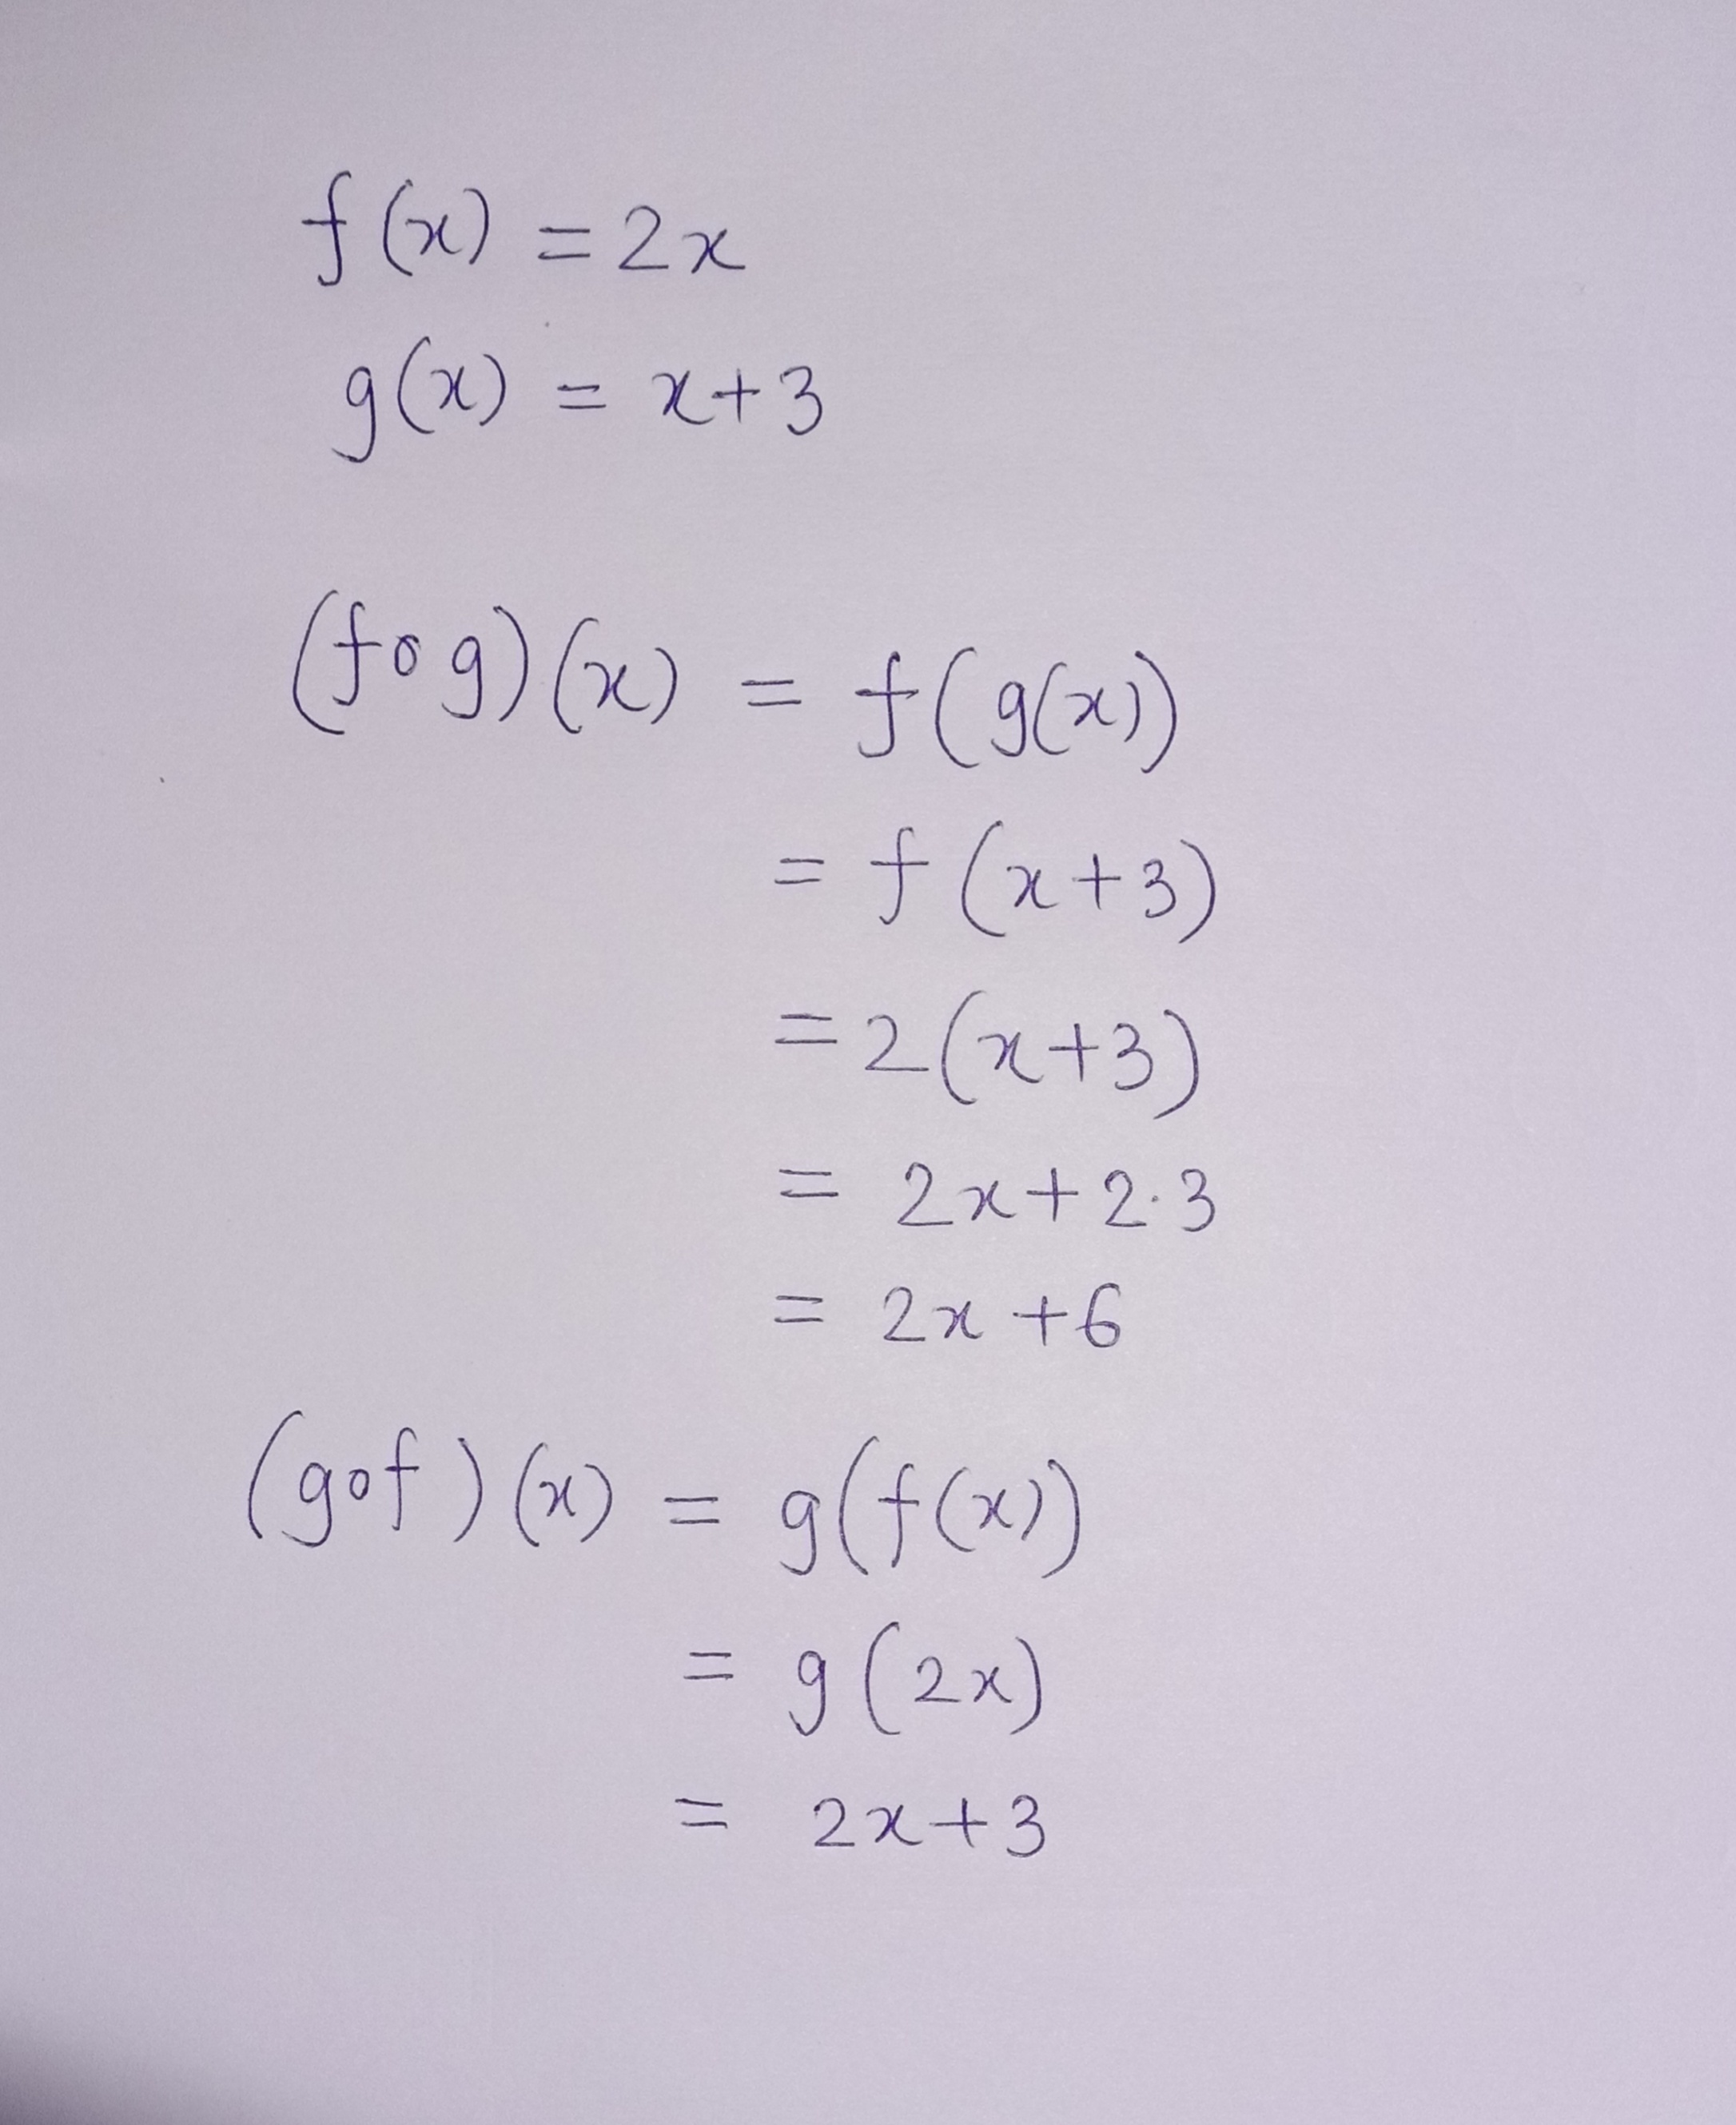 f(x) = 2x
g(x) = x+3
(fog)(x) = f(g(x))
= f(x+3)
= 2(x+3)
= 2x+2·3
= 2x+6
(gof)(x) = g(f(x))
= g(2x)
= 2x+3